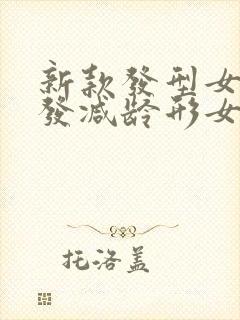 新款發型女
發減龄形女
托洛盖